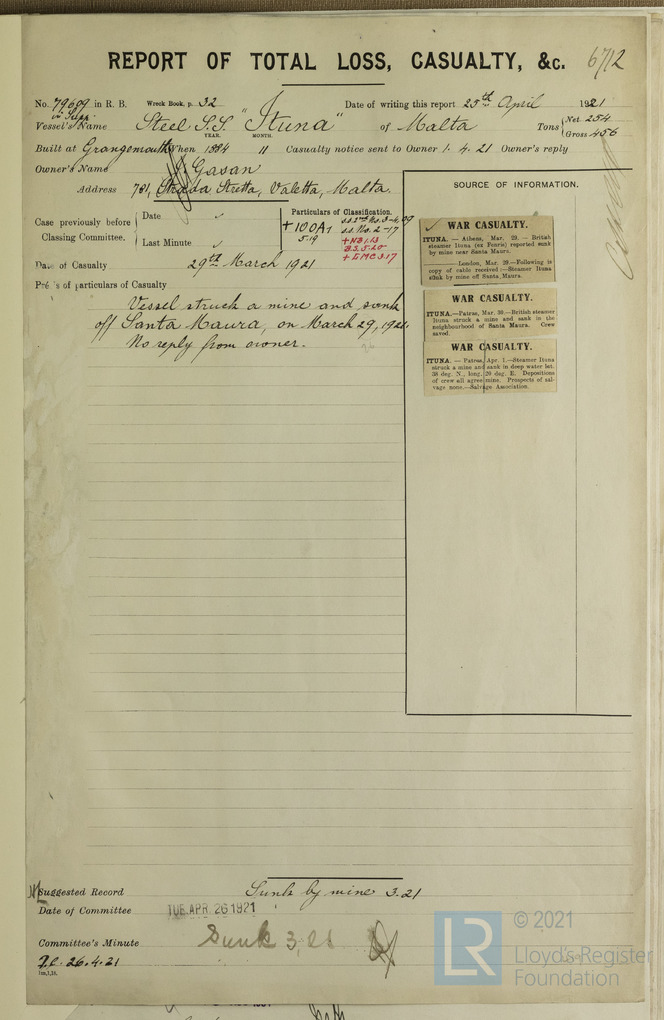 REPORT OF TOTAL LOSS, CASUALTY, &c. 6712
No. 79609 in R. B. Wreck Book, p. 32 Date of writing this report 25th April 1921
in Supp.
Vessel's Name Steel S.S. "Ituna" of Malta Tons Net 254 Gross 456
YEAR. MONTH.
Built at Grangemouth When 1884 11 Casualty notice sent to Owner 1.4.21 Owner's reply
Owner's Name J. Gasan
Address 781, Strada Stretta, Valetta, Malta.
Case previously before Classing Committee. Date
Last Minute
Particulars of Classification.
+100A1
5-19
s.s. No. 2-17
+NB 1.13
B.S. 5.20
+LMC 3.17
Date of Casualty 29th March 1921
Pré 's of particulars of Casualty
Vessel struck a mine and sank
off Santa Maura, on March 29, 1921.
No reply from owner.
SOURCE OF INFORMATION.
WAR CASUALTY.
ITUNA. — Athens, Mar. 29. — British
steamer Ituna (ex Fenris) reported sunk
by mine near Santa Maura.
——London, Mar. 29.—Following is
copy of cable received:—Steamer Ituna
sunk by mine off Santa Maura.
WAR CASUALTY.
ITUNA.—Patras, Mar. 30.—British steamer
Ituna struck a mine and sank in the
neighbourhood of Santa Maura. Crew
saved.
WAR CASUALTY.
ITUNA. — Patras, Apr. 1.—Steamer Ituna
struck a mine and sank in deep water lat.
38 deg. N., long. 20 deg. E. Depositions
of crew all agree mine. Prospects of sal-
vage none.—Salvage Association.
Suggested Record Sunk by mine 3.21
Date of Committee TUE. APR. 26 1921
Committee's Minute Sunk 3,21
26.4.21
LR
© 2021
Lloyd's Register
Foundation